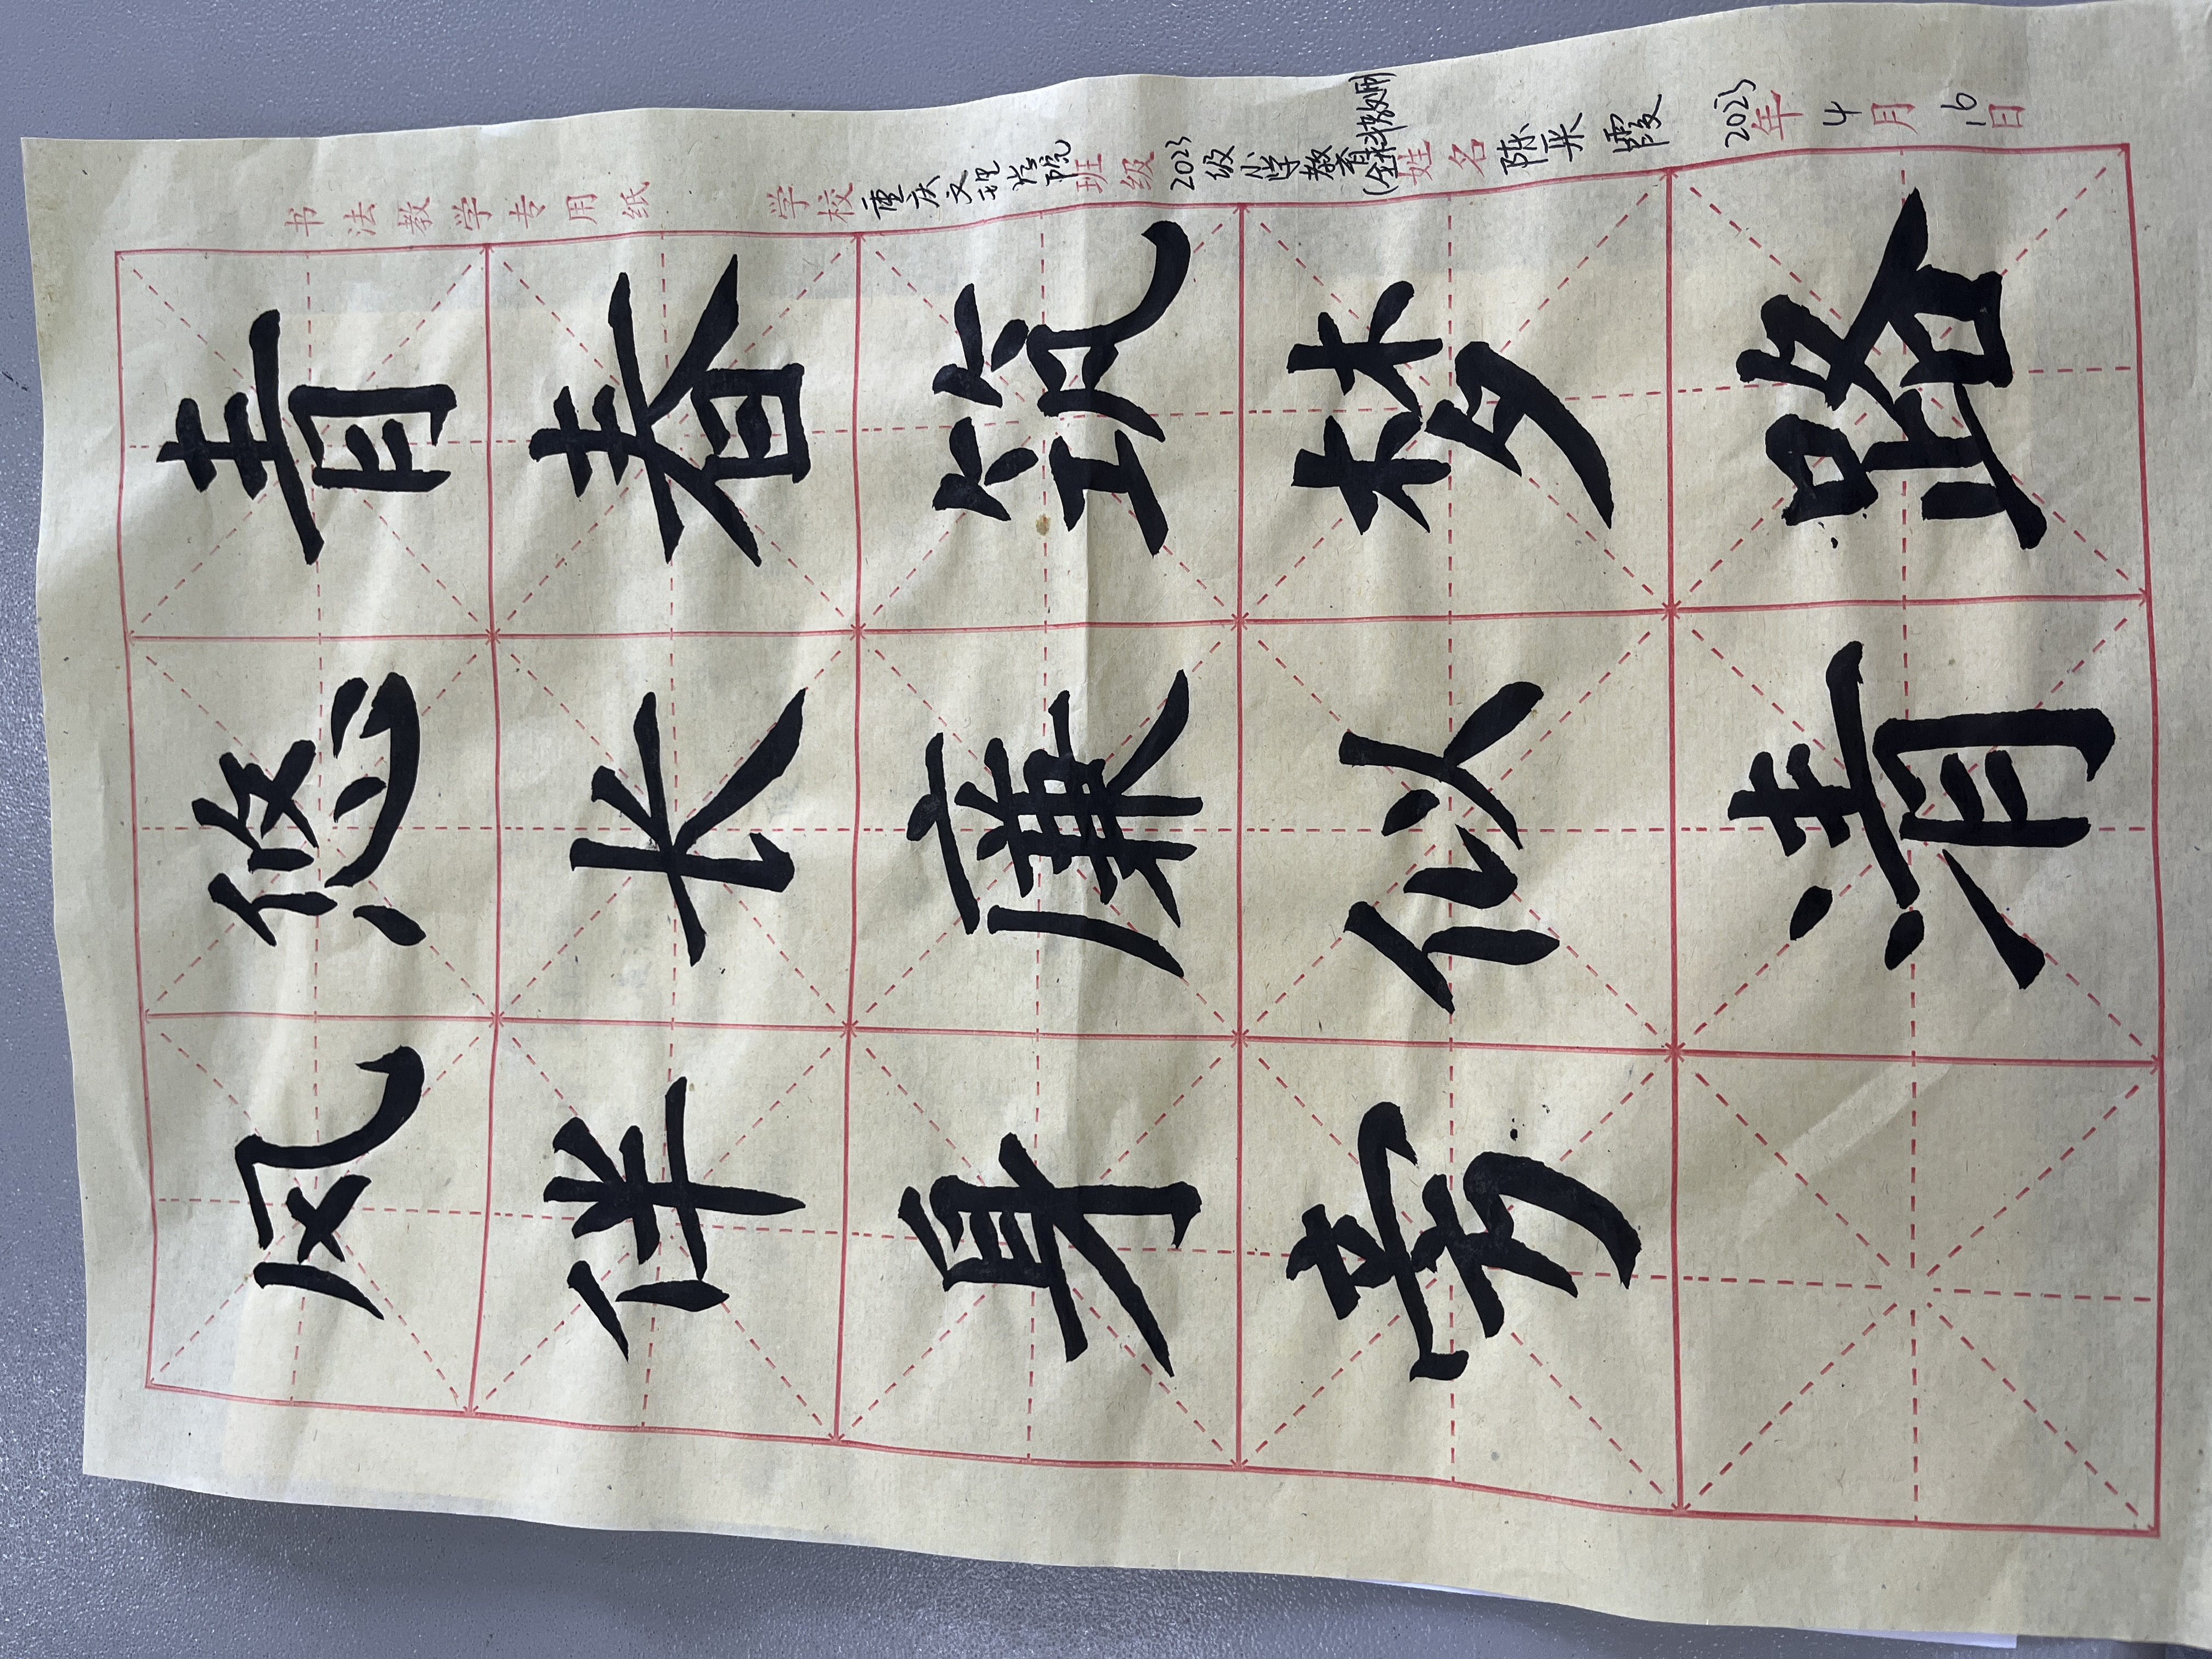 书法教学专用纸 学校 重庆文理学院 班级 2023级小学教育(全科教师) 姓名 陈霞 2025年4月16日
青春筑梦路
悠长廉似清
风伴身旁